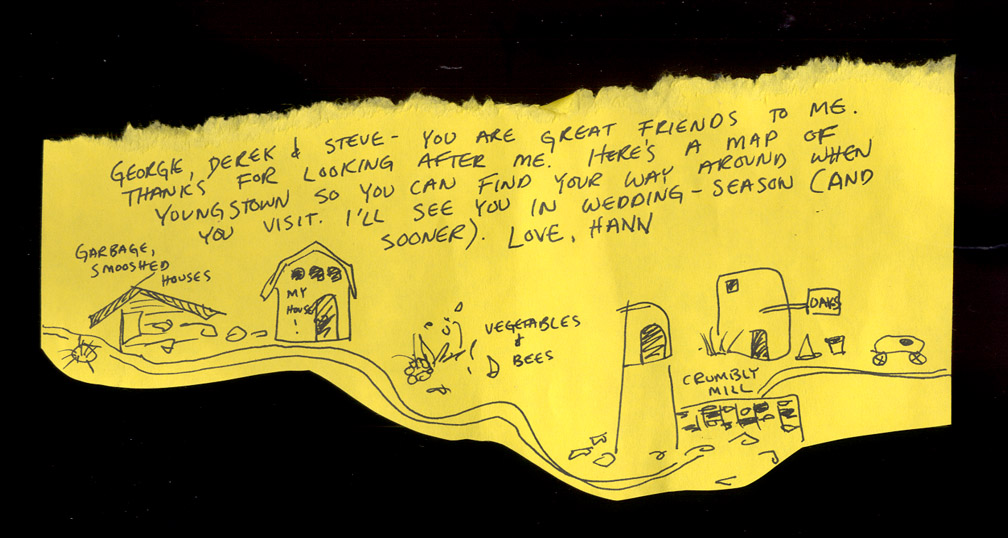 GEORGE, DEREK & STEVE - YOU ARE GREAT FRIENDS TO ME.
THANKS FOR LOOKING AFTER ME. HERE'S A MAP OF
YOUNGSTOWN SO YOU CAN FIND YOUR WAY AROUND WHEN
YOU VISIT. I'LL SEE YOU IN WEDDING-SEASON (AND
SOONER). LOVE, HANN
GARBAGE,
SMOOSHED
HOUSES
MY
HOUSE
!
VEGETABLES
&
BEES
OAKS
CRUMBLY
MILL